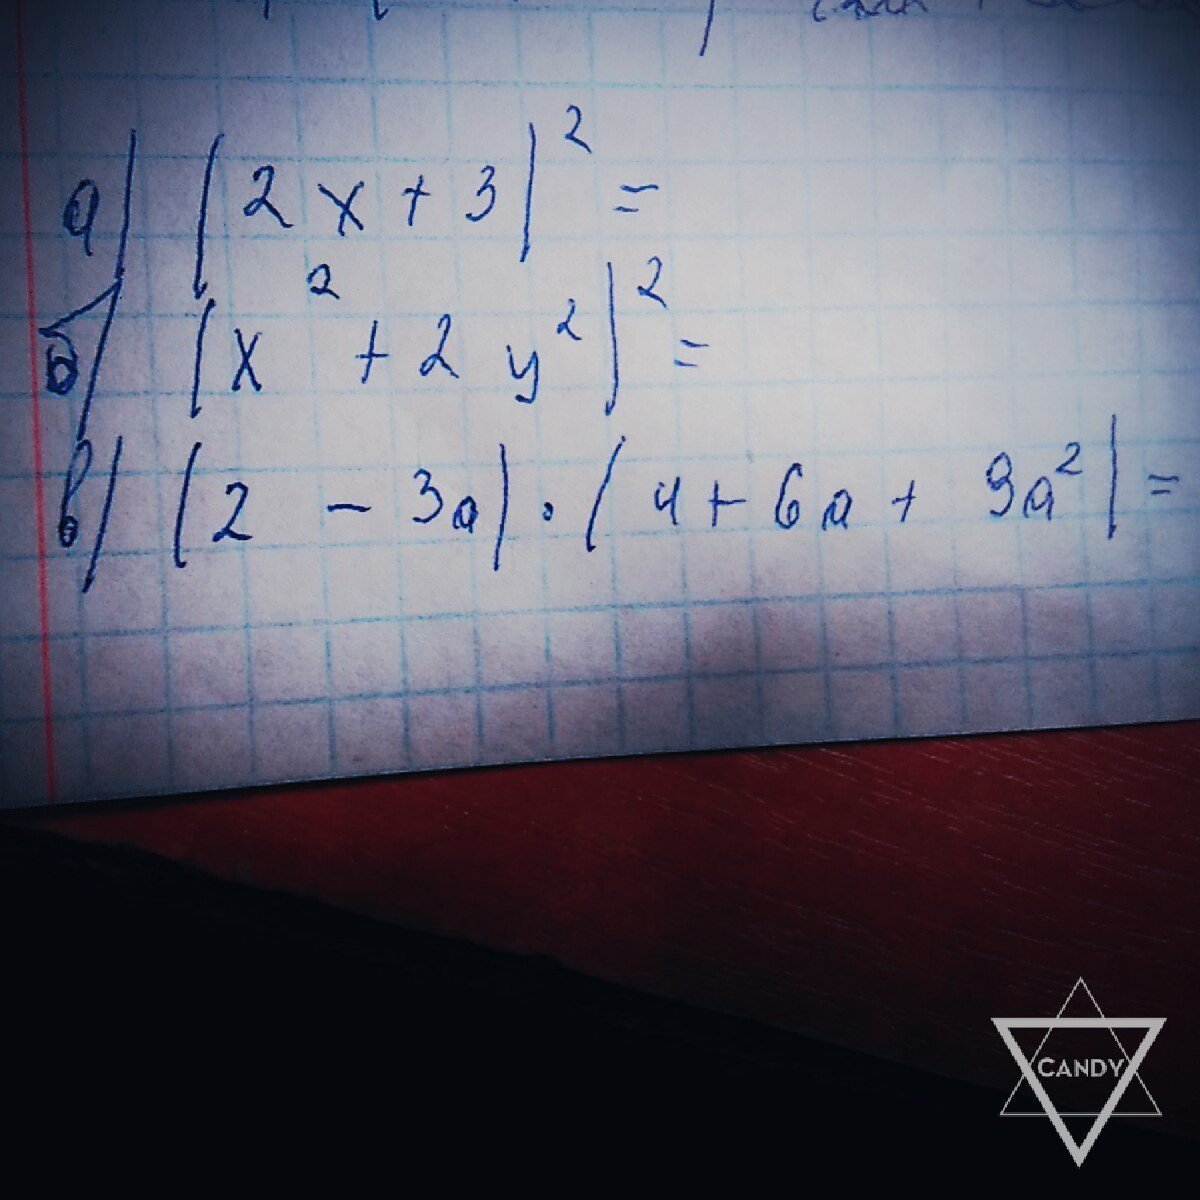 а) (2x+3)² =
б) (x² + 2y²)² =
в) (2 - 3a) · (4 + 6a + 9a²) =
CANDY